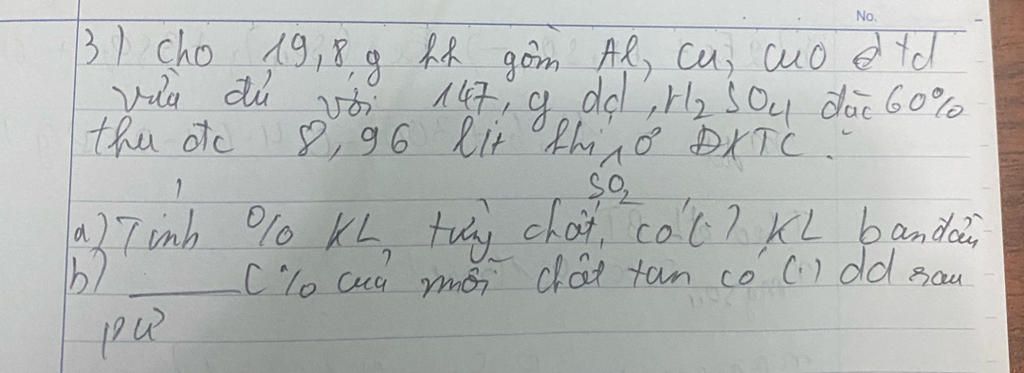 No.
3) Cho 19,8 g hh gồm Al, Cu, CuO td
vừa đủ với 147, g dd, H2SO4 đặc 60%
thu đc 8,96 lít khí ở ĐKTC.
SO2
a) Tính % KL từng chất, có (?) KL ban đầu
b) ___ C% của mỗi chất tan có (.) dd sau
pư